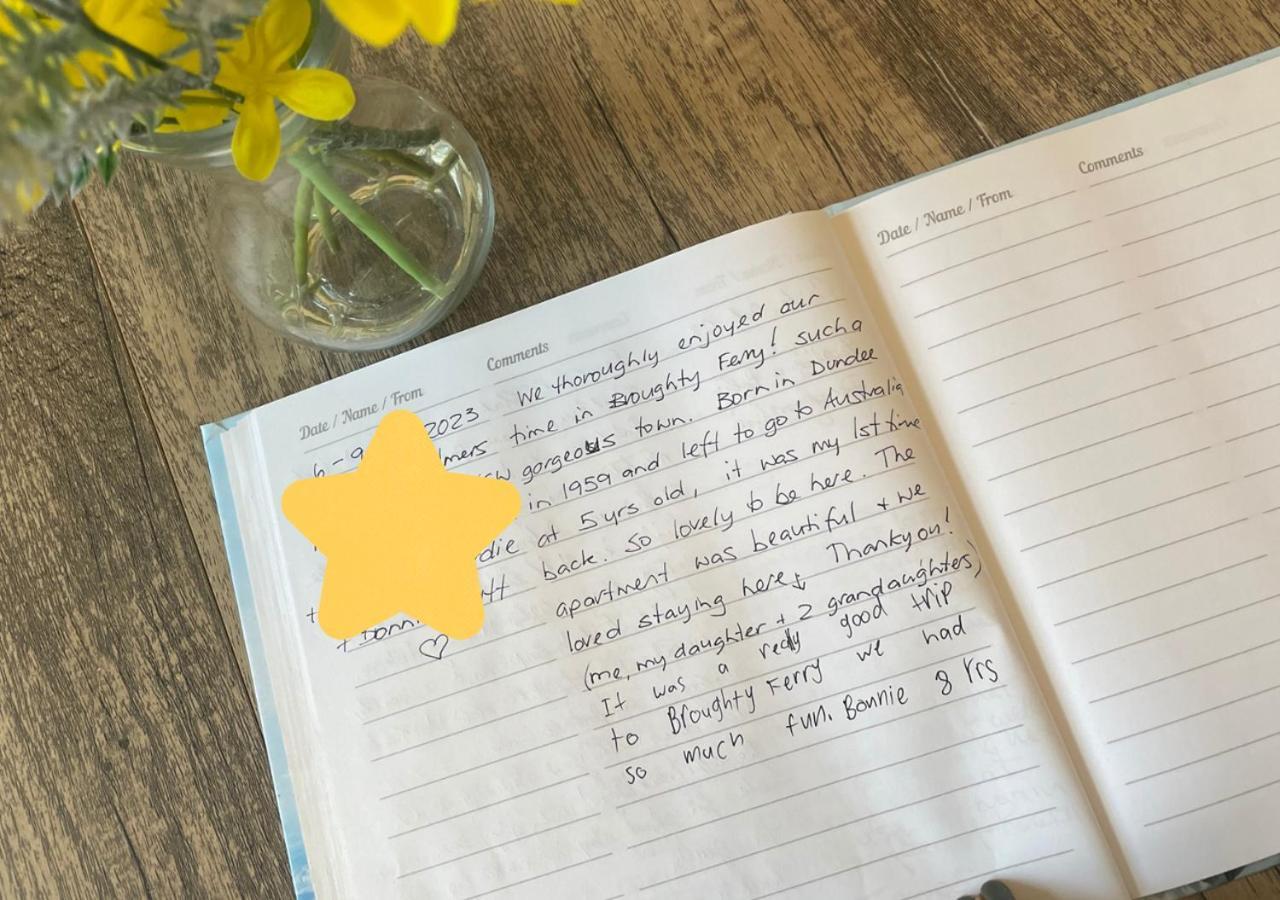 Date / Name / From Comments
6 - 9 2023 We thoroughly enjoyed our
time in Broughty Ferry! such a
gorgeous town. Born in Dundee
in 1959 and left to go to Australia
at 5 yrs old, it was my 1st time
back. So lovely to be here. The
apartment was beautiful + we
loved staying here. Thankyou!
(me, my daughter + 2 grandaughters)
It was a really good trip
to Broughty Ferry we had
so much fun. Bonnie 8 Yrs
♡
Date / Name / From Comments